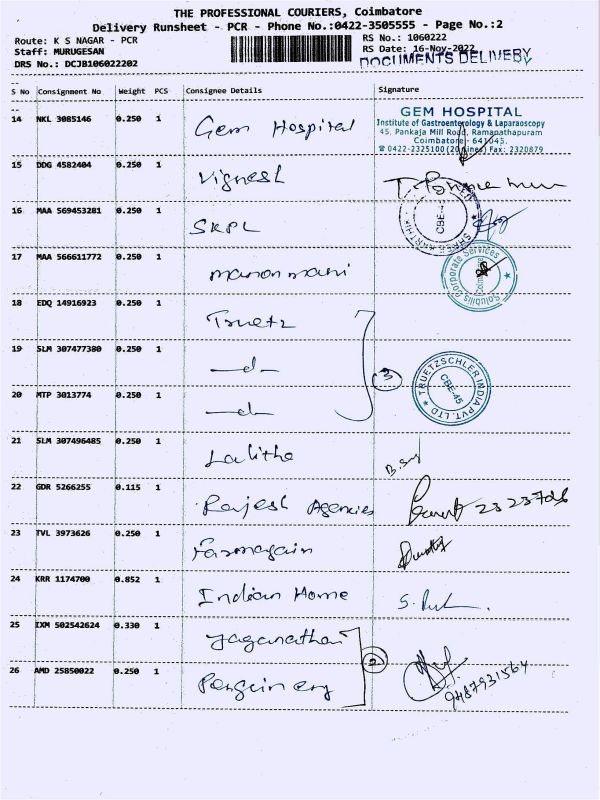 THE PROFESSIONAL COURIERS, Coimbatore
Delivery Runsheet - PCR - Phone No.:0422-3505555 - Page No.:2
Route: K S NAGAR - PCR
RS No.: 1060222
Staff: MURUGESAN
RS Date: 16-Nov-2022
DRS No.: DCJB106022202
DOCUMENTS DELIVERY
S No Consignment No Weight PCS Consignee Details Signature
14 NKL 3085146 0.250 1 Gem Hospital
GEM HOSPITAL
Institute of Gastroenterology & Laparascopy
45, Pankaja Mill Road, Ramanathapuram
Coimbatore - 641045.
☎ 0422-2325100 (20 Lines) Fax: 2320879
15 DDG 4582404 0.250 1 Vignesh
16 MAA 569453281 0.250 1 SKPL
CBE-4
17 MAA 566611772 0.250 1
Solubilis Corporate Services
18 EDQ 14916923 0.250 1 Truetz
19 SLM 307477380 0.250 1 —d—
3
TRUETZSCHLER INDIA PVT. LTD
CBE-45
20 MTP 3013774 0.250 1 —d—
21 SLM 307496485 0.250 1 Lalitha
22 GDR 5266255 0.115 1 Rajesh Agencies
23 TVL 3973626 0.250 1
24 KRR 1174700 0.852 1 Indian Home
25 IXM 502542624 0.330 1 Jaganathan
2
26 AMD 25850022 0.250 1
9487931564